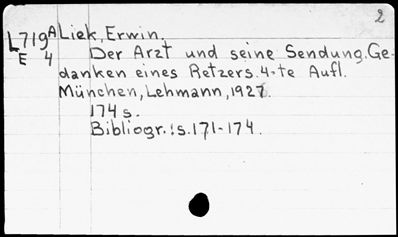 2
L719A Liek, Erwin.
E 4 Der Arzt und seine Sendung. Ge-
danken eines Retzers. 4-te Aufl.
München, Lehmann, 1927.
174 s.
Bibliogr.: s. 171-174.